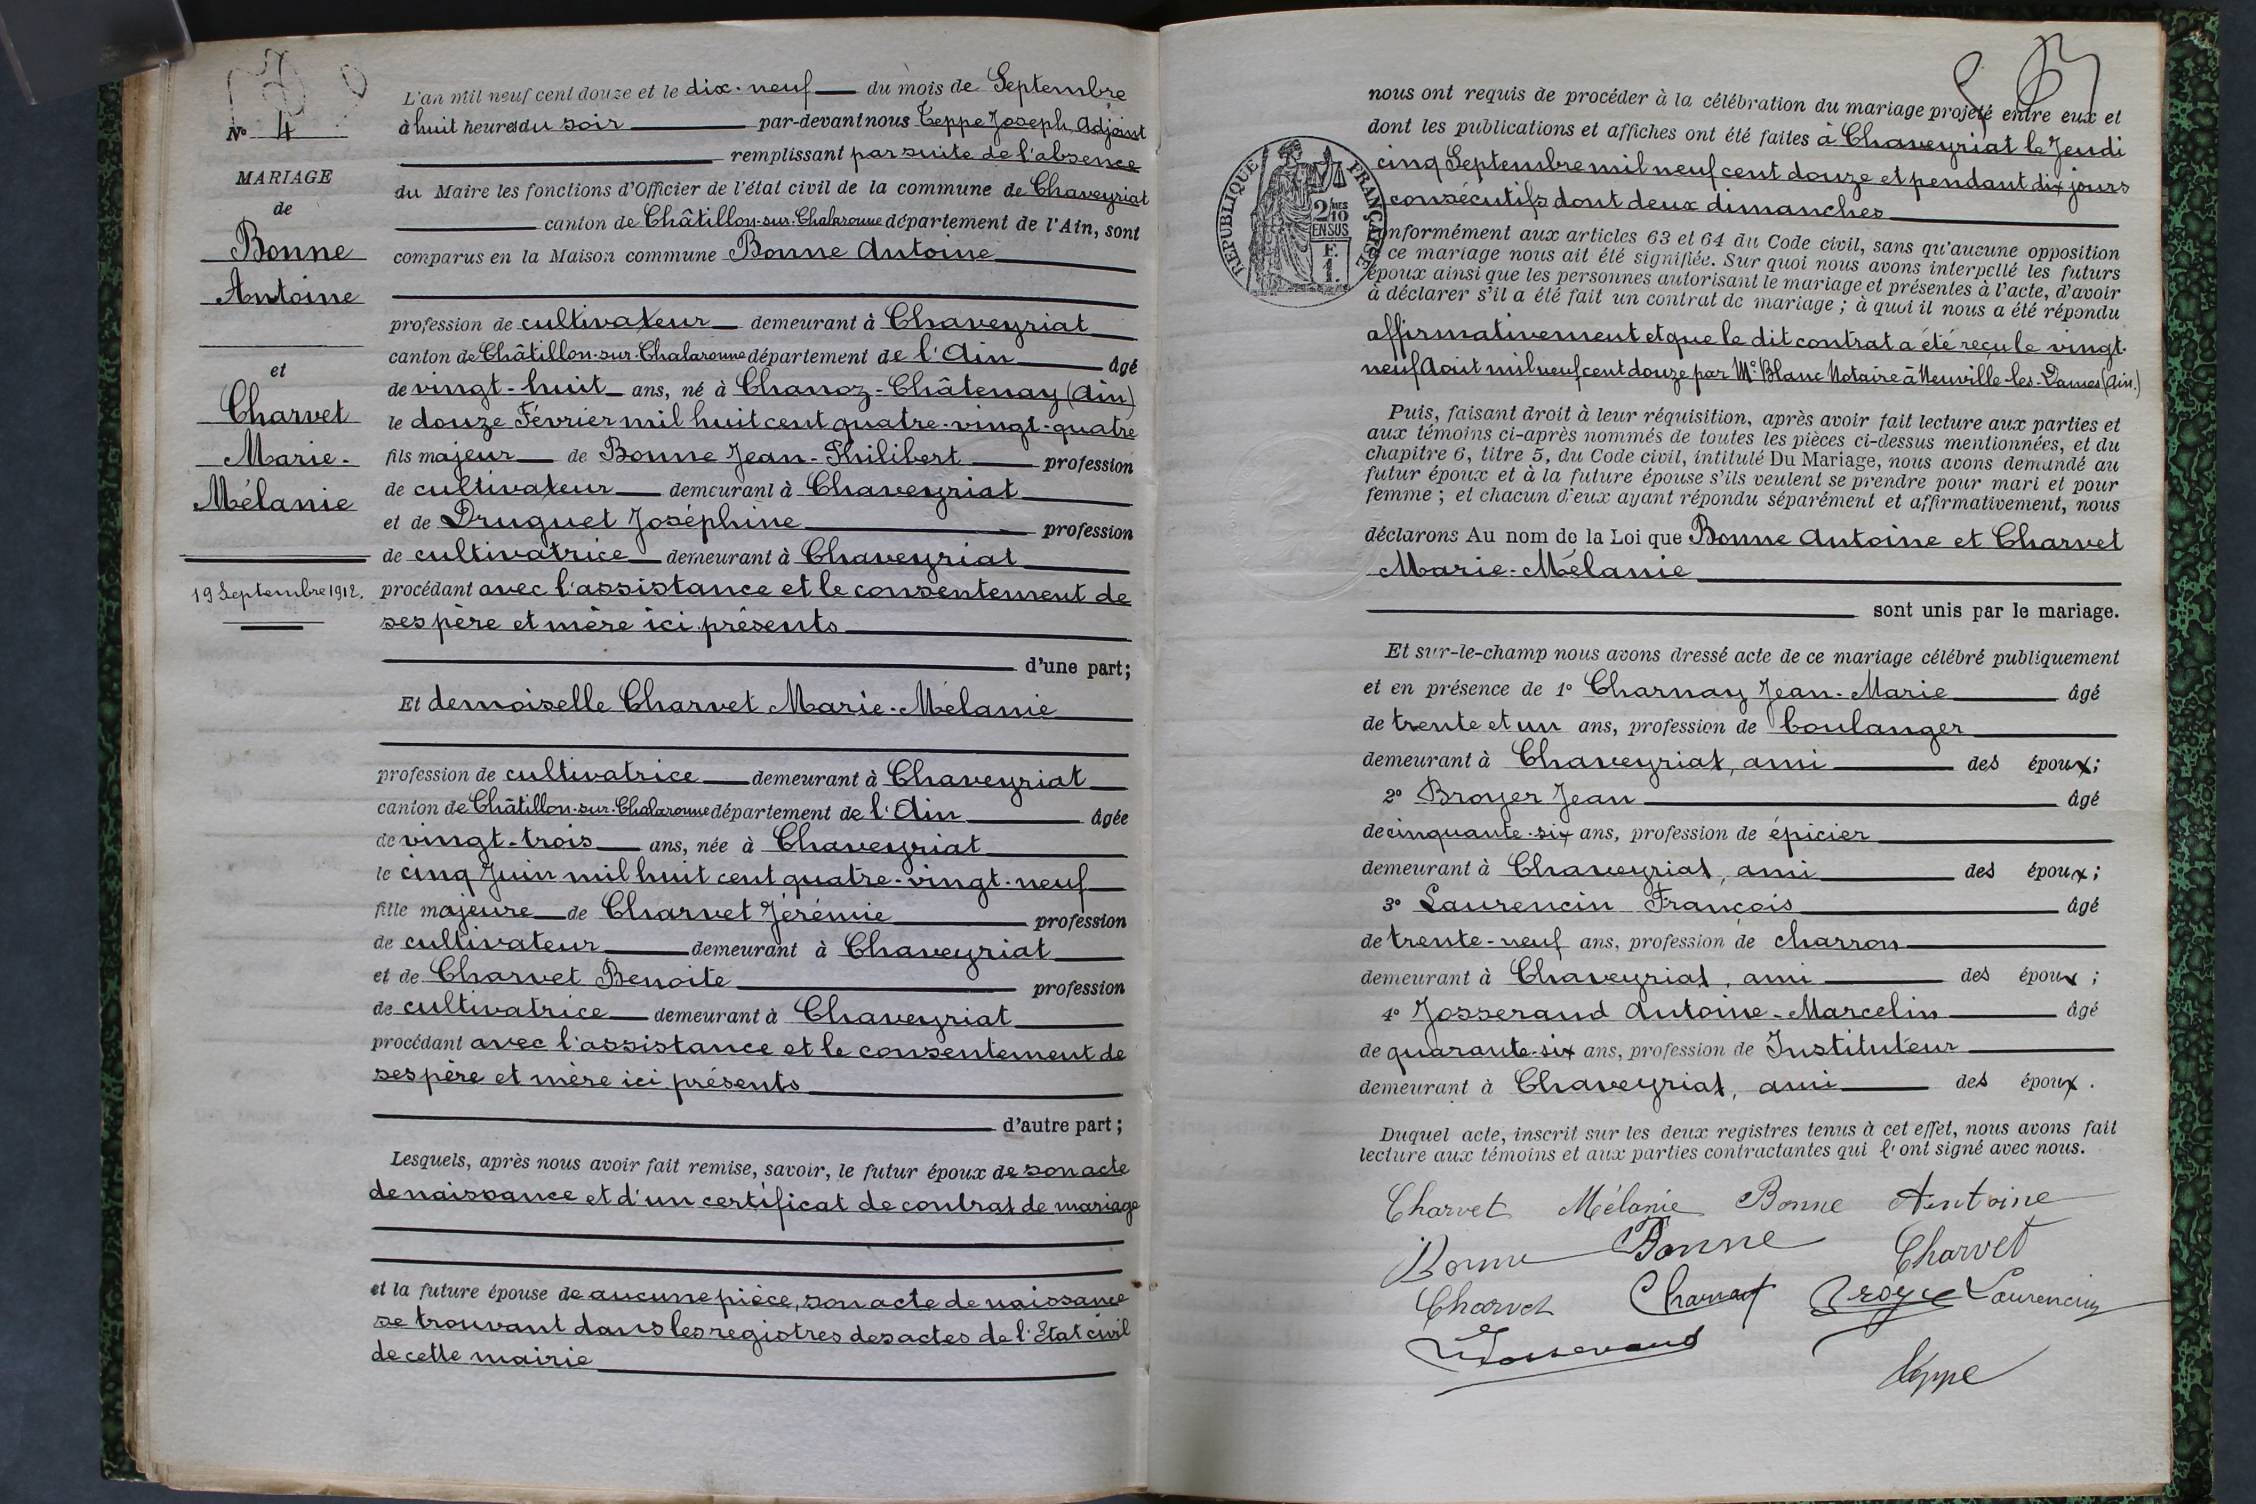 N° 4
MARIAGE
de
Bonne
Antoine
et
Charvet
Marie-
Mélanie
19 Septembre 1912.
L'an mil neuf cent douze et le dix-neuf du mois de Septembre
à huit heures du soir par-devant nous Teppe Joseph, Adjoint
remplissant par suite de l'absence
du Maire les fonctions d'Officier de l'état civil de la commune de Chaveyriat
canton de Châtillon-sur-Chalaronne département de l'Ain, sont
comparus en la Maison commune Bonne Antoine
profession de cultivateur demeurant à Chaveyriat
canton de Châtillon-sur-Chalaronne département de l'Ain âgé
de vingt-huit ans, né à Chanoz-Châtenay (Ain)
le douze Février mil huit cent quatre-vingt-quatre
fils majeur de Bonne Jean-Philibert profession
de cultivateur demeurant à Chaveyriat
et de Druguet Joséphine profession
de cultivatrice demeurant à Chaveyriat
procédant avec l'assistance et le consentement de
ses père et mère ici présents
d'une part;
Et demoiselle Charvet Marie-Mélanie
profession de cultivatrice demeurant à Chaveyriat
canton de Châtillon-sur-Chalaronne département de l'Ain âgée
de vingt-trois ans, née à Chaveyriat
le cinq Juin mil huit cent quatre-vingt-neuf
fille majeure de Charvet Jérémie profession
de cultivateur demeurant à Chaveyriat
et de Charvet Benoite profession
de cultivatrice demeurant à Chaveyriat
procédant avec l'assistance et le consentement de
ses père et mère ici présents
d'autre part;
Lesquels, après nous avoir fait remise, savoir, le futur époux de son acte
de naissance et d'un certificat de contrat de mariage
et la future épouse de aucune pièce, son acte de naissance
se trouvant dans les registres des actes de l'Etat civil
de cette mairie
nous ont requis de procéder à la célébration du mariage projeté entre eux et
dont les publications et affiches ont été faites à Chaveyriat le Jeudi
cinq Septembre mil neuf cent douze et pendant dix jours
consécutifs dont deux dimanches
RÉPUBLIQUE FRANÇAISE
2/10
EN SUS
F.
1.
conformément aux articles 63 et 64 du Code civil, sans qu'aucune opposition
à ce mariage nous ait été signifiée. Sur quoi nous avons interpellé les futurs
époux ainsi que les personnes autorisant le mariage et présentes à l'acte, d'avoir
à déclarer s'il a été fait un contrat de mariage ; à quoi il nous a été répondu
affirmativement et que le dit contrat a été reçu le vingt-
neuf Aout mil neuf cent douze par Me Blanc Notaire à Neuville-les-Dames (Ain.)
Puis, faisant droit à leur réquisition, après avoir fait lecture aux parties et
aux témoins ci-après nommés de toutes les pièces ci-dessus mentionnées, et du
chapitre 6, titre 5, du Code civil, intitulé Du Mariage, nous avons demandé au
futur époux et à la future épouse s'ils veulent se prendre pour mari et pour
femme ; et chacun d'eux ayant répondu séparément et affirmativement, nous
déclarons Au nom de la Loi que Bonne Antoine et Charvet
Marie-Mélanie
sont unis par le mariage.
Et sur-le-champ nous avons dressé acte de ce mariage célébré publiquement
et en présence de 1° Charnay Jean-Marie âgé
de trente et un ans, profession de boulanger
demeurant à Chaveyriat, ami des époux;
2° Broyer Jean âgé
de cinquante-six ans, profession de épicier
demeurant à Chaveyriat, ami des époux;
3° Laurencin François âgé
de trente-neuf ans, profession de charron
demeurant à Chaveyriat, ami des époux ;
4° Josserand Antoine-Marcelin âgé
de quarante-six ans, profession de Instituteur
demeurant à Chaveyriat, ami des époux.
Duquel acte, inscrit sur les deux registres tenus à cet effet, nous avons fait
lecture aux témoins et aux parties contractantes qui l'ont signé avec nous.
Charvet Mélanie Bonne Antoine
Bonne Bonne Charvet
Charvet Charnay Broyer Laurencin
Josserand
Teppe